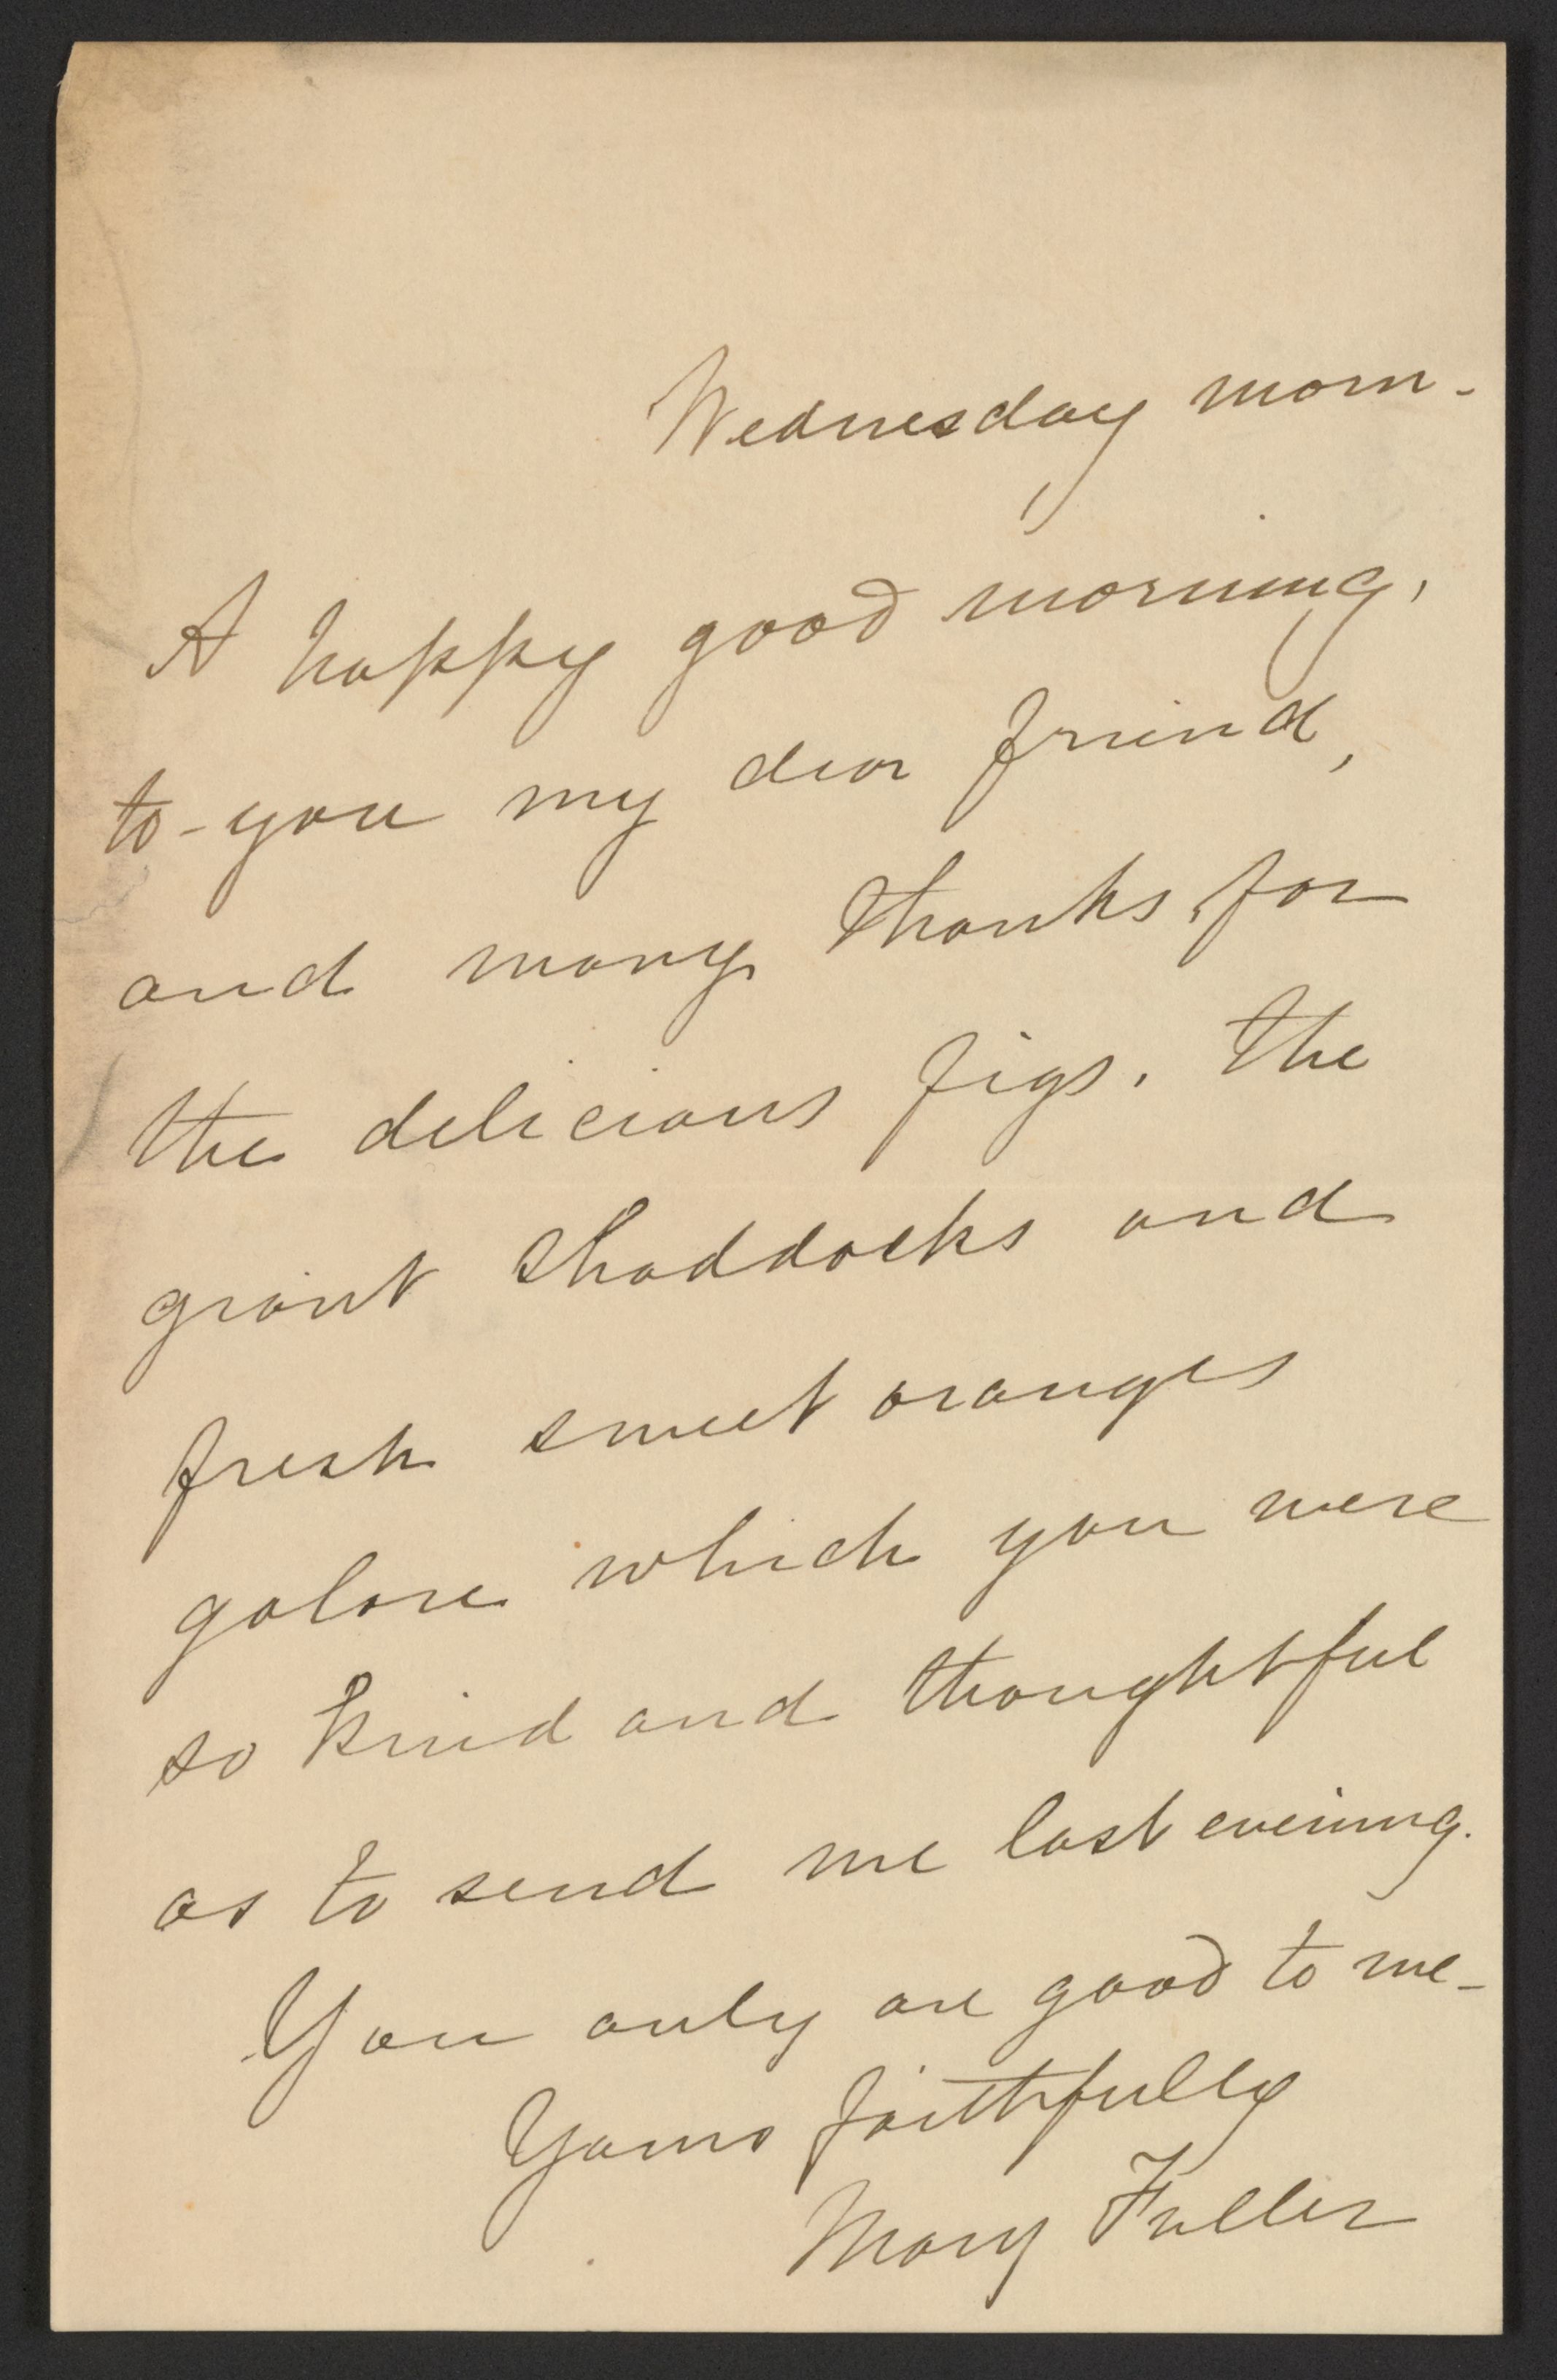 Wednesday morn-
A happy good morning,
to-you my dear friend,
and many thanks for
the delicious figs. the
giant shaddocks and
fresh sweet oranges
galore which you were
so kind and thoughtful
as to send me last evening.
You only are good to me-
Yours faithfully
Mary Fuller